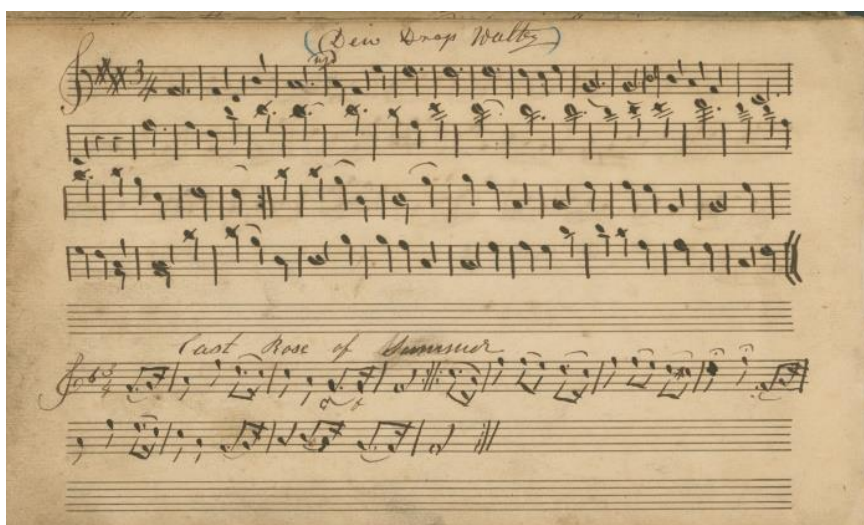 (Dew Drop Waltz)
3/4
Last Rose of Summer
3/4